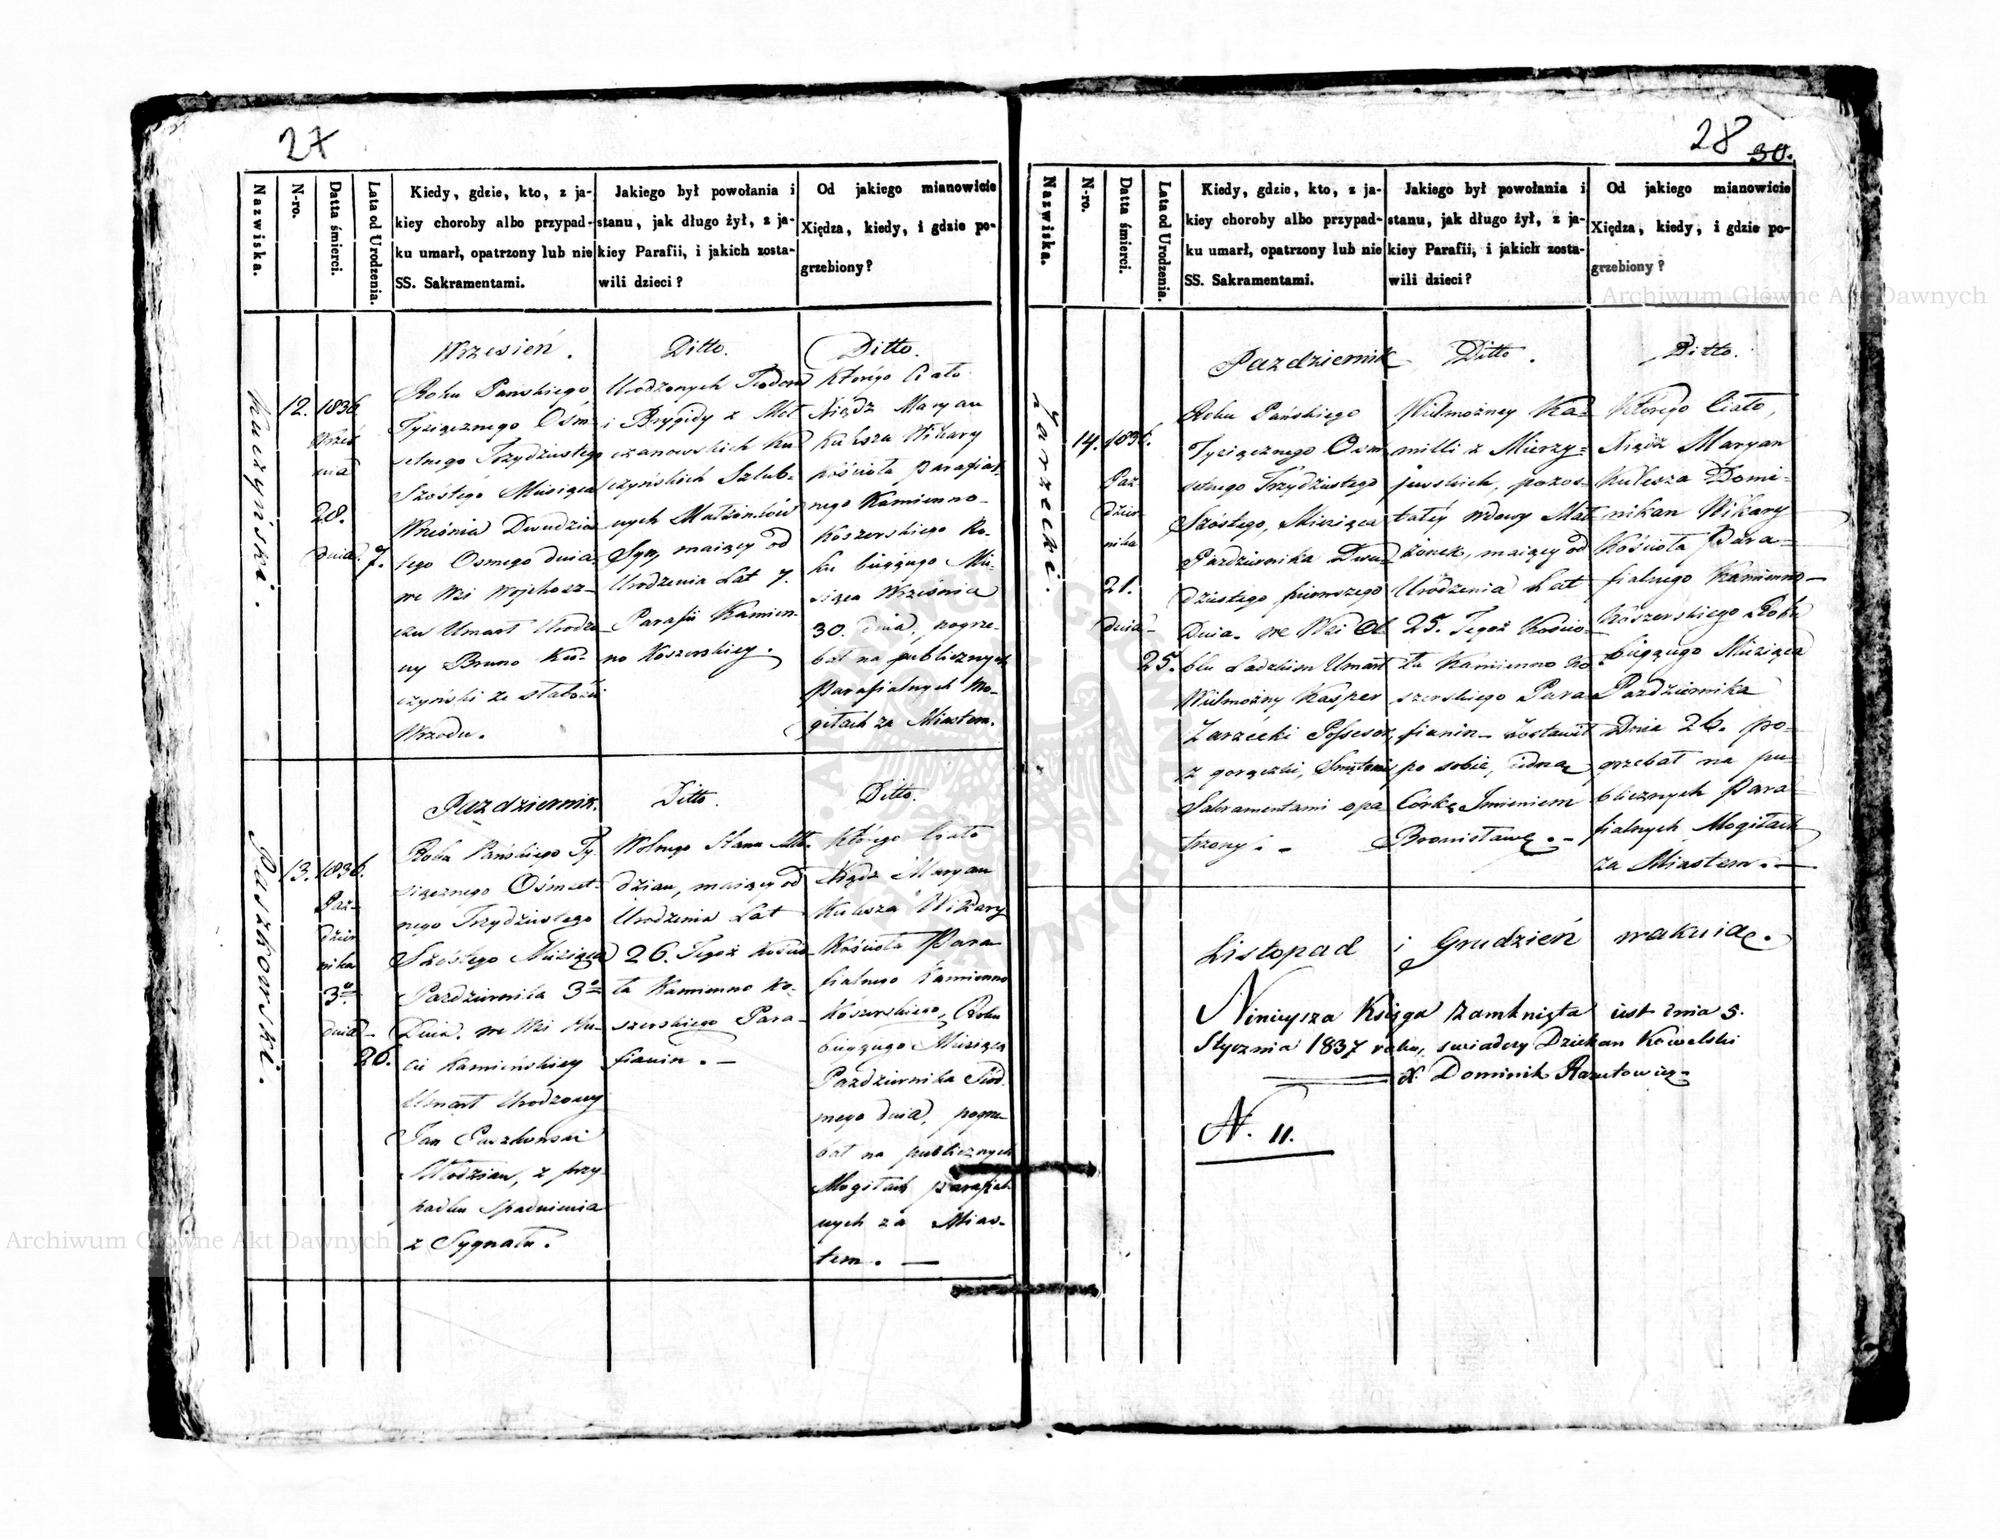 27
Nazwiska.
N-ro.
Datta śmierci.
Lata od Urodzenia.
Kiedy, gdzie, kto, z ja-
kiey choroby albo przypad-
ku umarł, opatrzony lub nie
SS. Sakramentami.
Jakiego był powołania i
stanu, jak długo żył, z ja-
kiey Parafii, i jakich zosta-
wili dzieci?
Od jakiego mianowicie
Xiędza, kiedy, i gdzie po-
grzebiony?
Kuczyński.
12.
1836
Wrześ
nia
28.
dnia
7.
Wrzesień.
Roku Pańskiego
Tysiącznego Ośm-
setnego Trzydziestego
Szóstego Miesiąca
Września Dwudzie
stego Osmego dnia
we Wsi
Umarł Urodzo
ny Bruno Ku-
czyński ze słabości
Wrzodu.
Ditto.
Urodzonych Teodora
i Brygidy z
Ku
czyńskich Szlub-
nych Małżonków
Syn, maiący od
Urodzenia Lat 7.
Parafii Kamien
no Koszerskiey.
Ditto.
którego Ciało
Xiądz Maryan
Kulesza Wikary
kościoła parafial-
nego Kamienno-
Koszerskiego Ro-
ku bieżącego Mie-
siąca Września
30. dnia, pogrze-
bał na publicznych
Parafialnych Mo-
giłach za Miastem.
Paszkowski.
13.
1836.
Paź-
dzier
nika
3º
dnia
26.
Pazdziernik.
Roku Pańskiego Ty-
siącznego Ośmset-
nego Trzydziestego
Szóstego Miesiąca
Pazdziernika 3º
Dnia. we Wsi Hu-
cie Kamieńskiey
Umarł Urodzony
Jan Paszkowski
Młodzian, z przy
padku Spadnienia
z Sygnału.
Ditto.
Wolnego Stanu Mło-
dzian, maiący od
Urodzenia Lat
26. Tegoż Kościo
ła Kamienno Ko-
szerskiego Para-
fianin. —
Ditto.
którego Ciało
Xiądz Maryan
Kulesza Wikary
Kościoła Para
fialnego Kamienno
Koszerskiego, Roku
bieżącego Miesiąca
Pazdziernika Siód
mego dnia, pogrze-
bał na publicznych
Mogiłach parafial
nych za Mias-
tem. —
28
30.
Nazwiska.
N-ro.
Datta śmierci.
Lata od Urodzenia.
Kiedy, gdzie, kto, z ja-
kiey choroby albo przypad-
ku umarł, opatrzony lub nie
SS. Sakramentami.
Jakiego był powołania i
stanu, jak długo żył, z ja-
kiey Parafii, i jakich zosta-
wili dzieci?
Od jakiego mianowicie
Xiędza, kiedy, i gdzie po-
grzebiony?
Zarzecki.
14.
1836.
Paź-
dzier
nika
21.
dnia
25.
Pazdziernik
Roku Pańskiego
Tysiącznego Ośm
setnego Trzydziestego
Szóstego, Miesiąca
Pazdziernika Dwu
dziestego pierwszego
Dnia. we Wsi
Umarł
Wielmożny Kasper
Zarzecki Possesor
z gorączki, Świętemi
Sakramentami opa
trzony. -
Ditto.
Wielmożney Ka-
milli z Mierzy-
jewskich, pozos-
tałey wdowy Mał
żonek, maiący od
Urodzenia Lat
25. Tegoż Kościo-
ła Kamienno Ko
szerskiego Para-
fianin - zostawił
po sobie, iedną
Córkę Imieniem
Bronisławę. -
Ditto.
Którego Ciało,
Xiądz Maryan
Kulesza Domi-
nikan Wikary
Kościoła Para-
fialnego Kamienno-
Koszerskiego Roku
bieżącego Miesiąca
Pazdziernika
Dnia 26. po-
grzebał na pu-
blicznych Para
fialnych Mogiłach
za Miastem. —
Listopad i Grudzień wakuią.
Ninieysza Księga zamknięta iest dnia 5.
Stycznia 1837 roku, swiadczy Dziekan Kowelski
X. Dominik
N. 11.
Archiwum Główne Akt Dawnych
Archiwum Główne Akt Dawnych